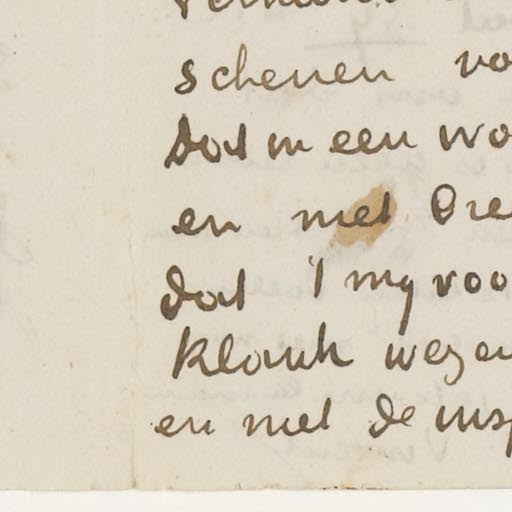 schenen vo
Dat m een wo
en met Bre
dat 't my voo
Klank wezen
en met de insp